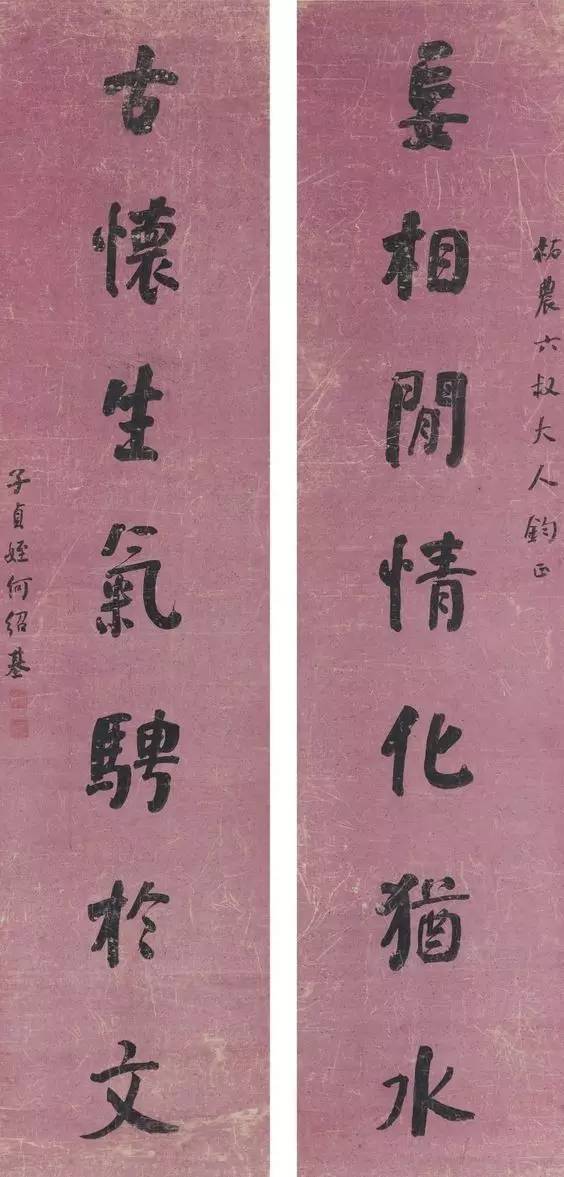 柘農六叔大人鈞正
妄相閒情化猶水
古懷生氣騁於文
子貞姪何紹基